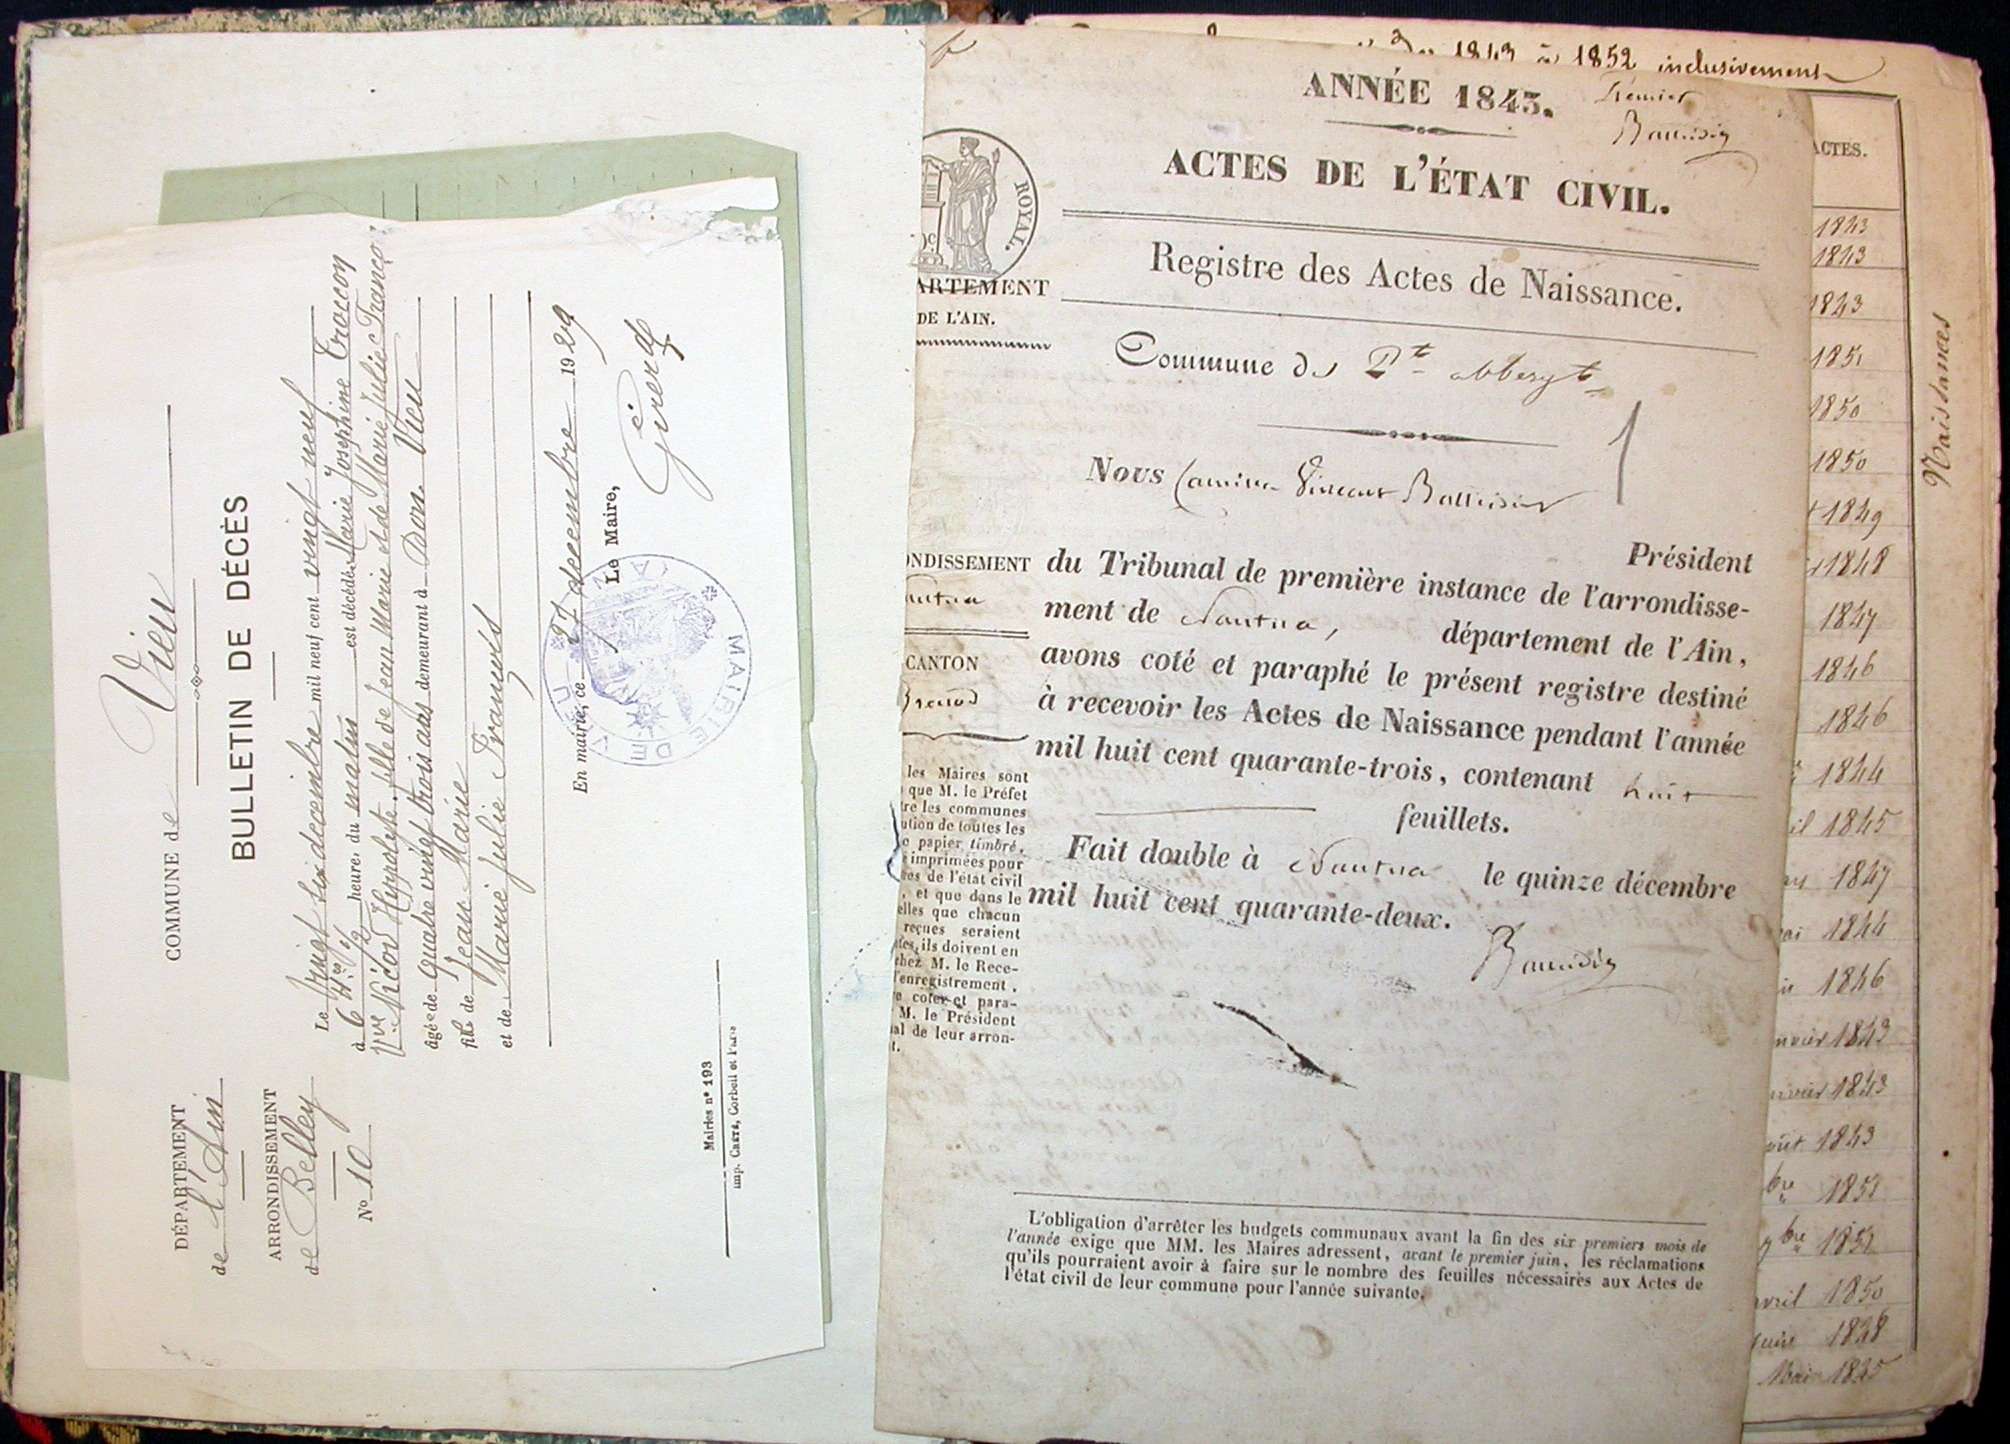 DÉPARTEMENT
de l'Ain
ARRONDISSEMENT
de Belley
N° 10
COMMUNE de Vieu
BULLETIN DE DÉCÈS
Le vingt six decembre mil neuf cent vingt neuf
à 6 Hres 1/2 heure, du matin est décédée Marie Josephine Trocon
Vve Nicod Hyppolite, fille de Jean Marie et de Marie Julie Franço
âgée de quatre vingt trois ans demeurant à Don. Vieu
fille de Jean Marie
et de Marie Julie François
En mairie, ce 27 decembre 1929
Le Maire,
MAIRIE DE VIEU
Mairies n° 193
Corbeil et Paris
1843 à 1852 inclusivement
ANNÉE 1843.
Premier
ACTES DE L'ÉTAT CIVIL.
ROYAL.
ARTEMENT
DE L'AIN.
Registre des Actes de Naissance.
Commune de Pt abergt
1
Nous
Président
du Tribunal de première instance de l'arrondisse-
ment de Nantua, département de l'Ain,
avons coté et paraphé le présent registre destiné
à recevoir les Actes de Naissance pendant l'année
mil huit cent quarante-trois, contenant huit
feuillets.
Fait double à Nantua le quinze décembre
mil huit cent quarante-deux.
ONDISSEMENT
antua
CANTON
les Maires sont
que M. le Préfet
tre les communes
ution de toutes les
papier timbré,
imprimées pour
de l'état civil
, et que dans le
elles que chacun
reçues seraient
ils doivent en
chez M. le Rece-
l'enregistrement,
coter et para-
M. le Président
al de leur arron-
t.
L'obligation d'arrêter les budgets communaux avant la fin des six premiers mois de
l'année exige que MM. les Maires adressent, avant le premier juin, les réclamations
qu'ils pourraient avoir à faire sur le nombre des feuilles nécessaires aux Actes de
l'état civil de leur commune pour l'année suivante.
ACTES.
1843
1843
1843
1851
1850
1850
1849
1848
1847
1846
1846
1844
il 1845
1847
ai 1844
1846
nvier 1843
nvier 1843
oût 1843
bre 1851
bre 1851
avril 1850
1848
1845
Naissances